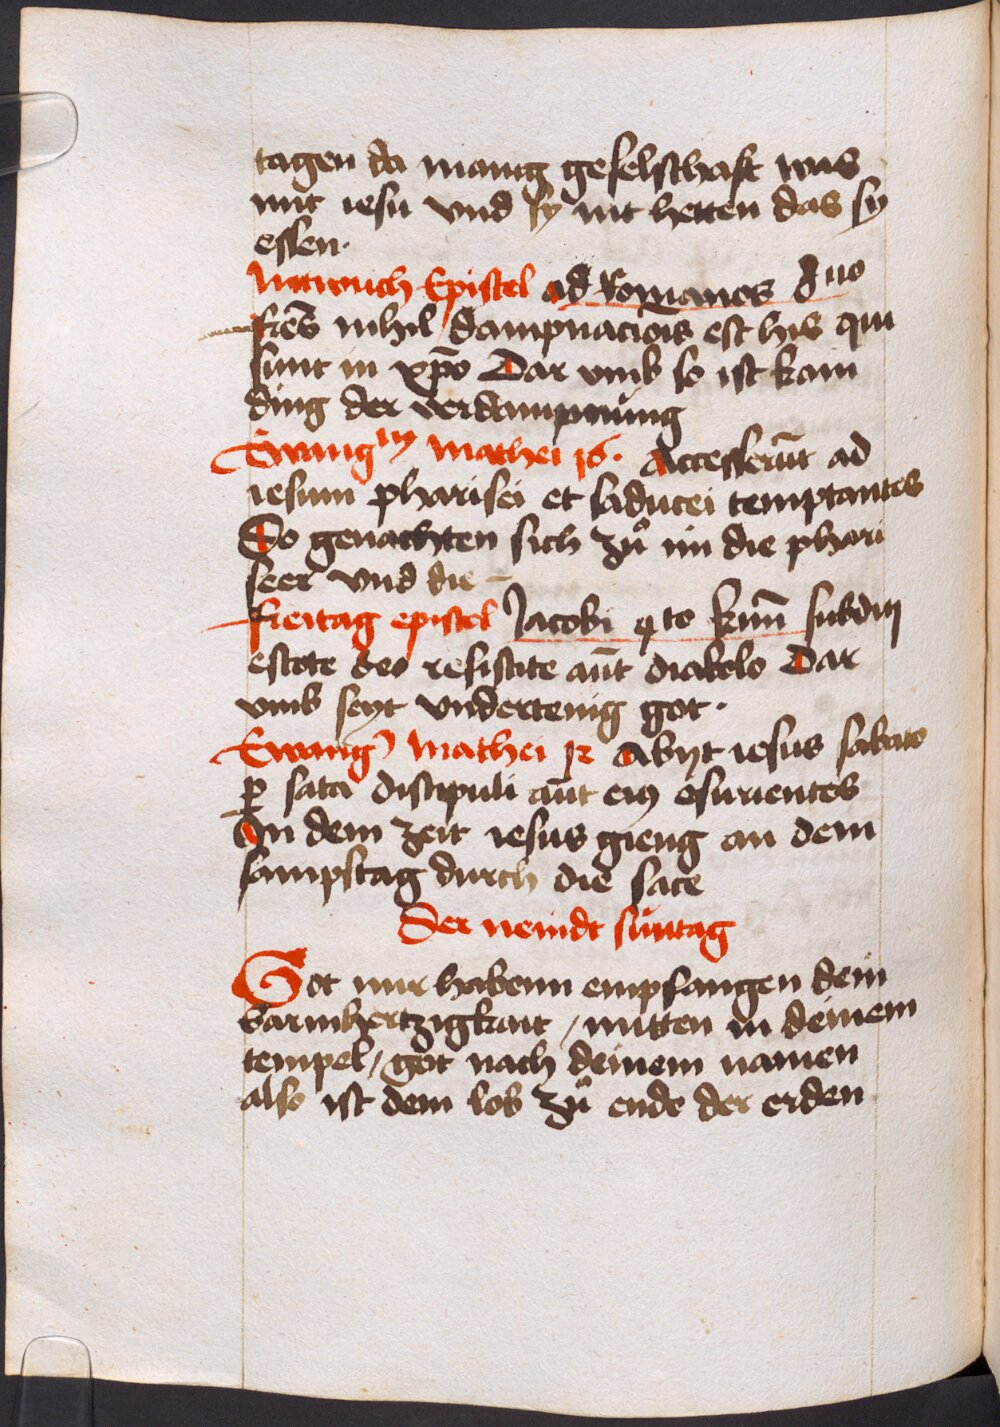 tagen da manig geselschaft was
mit iesu vnd sy nit hetten das sy
essen.
Mitwuch Epistel ad Romanos 8uo
fres̄ nihil dampnaciōis est his qui
sunt in xp̄o Dar vmb so ist kain
ding der verdampnüng
Ewangm mathei 16. Accesserūt ad
iesum pharisei et saducei temptantes
So genachten sich zů im die phari
seer vnd die –
freitag epistel Jacobi qto kīm subditi
estote deo resistite aūt diabolo Dar
vmb seyt vndertenig got.
Ewang mathei 12 Abyt iesus sabato
ꝑ sata discipuli aūt eiꝰ esurientes
In dem zeit iesus gieng an dem
sampstag durch die sate
Der neindt suntag
Got mir habenn empfangen dein
barmhertzigkait / mitten in deinem
tempel / got nach deinem namen
also ist dem lob zů ende der erden